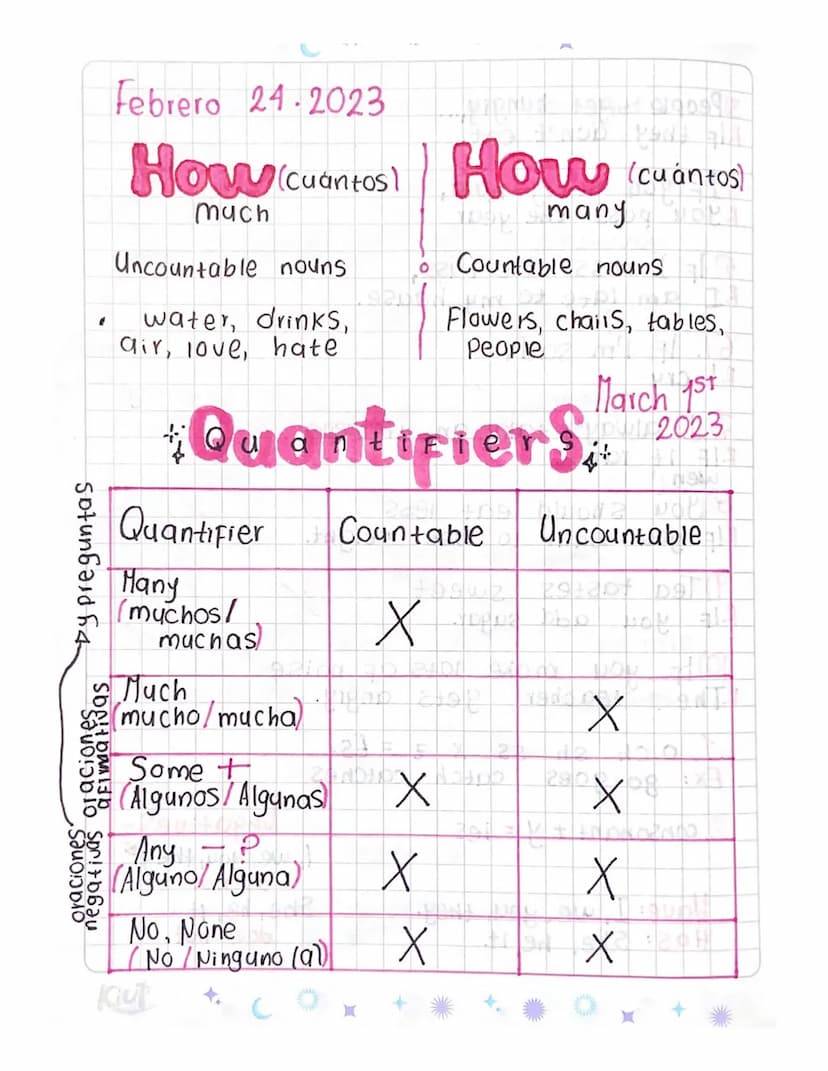 Febrero 24.2023
How (cuántos)
much
Uncountable nouns
• water, drinks,
air, love, hate
How (cuántos)
many
Countable nouns
Flowers, chairs, tables,
People
March 1st
2023
Quantifiers
Quantifier Countable Uncountable
Many
(muchos/
muchas) X
Much
(mucho/mucha) X
Some +
(Algunos/Algunas) X X
Any – ?
(Alguno/Alguna) X X
No, None
(No/Ninguno(a)) X X
oraciones
afirmativas
oraciones
negativas
→ y preguntas
Kiut